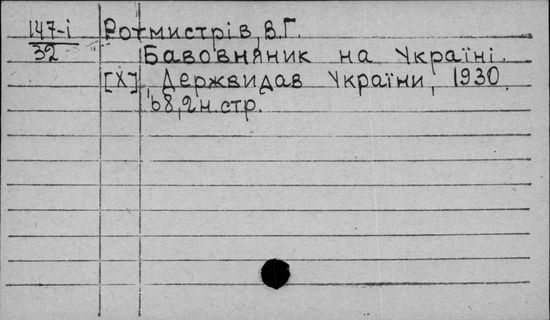 147-і Ротмистрів, В.Г.
32 Бавовняник на Україні.
[Х], Держвидав України, 1930.
68, 2 н. стр.